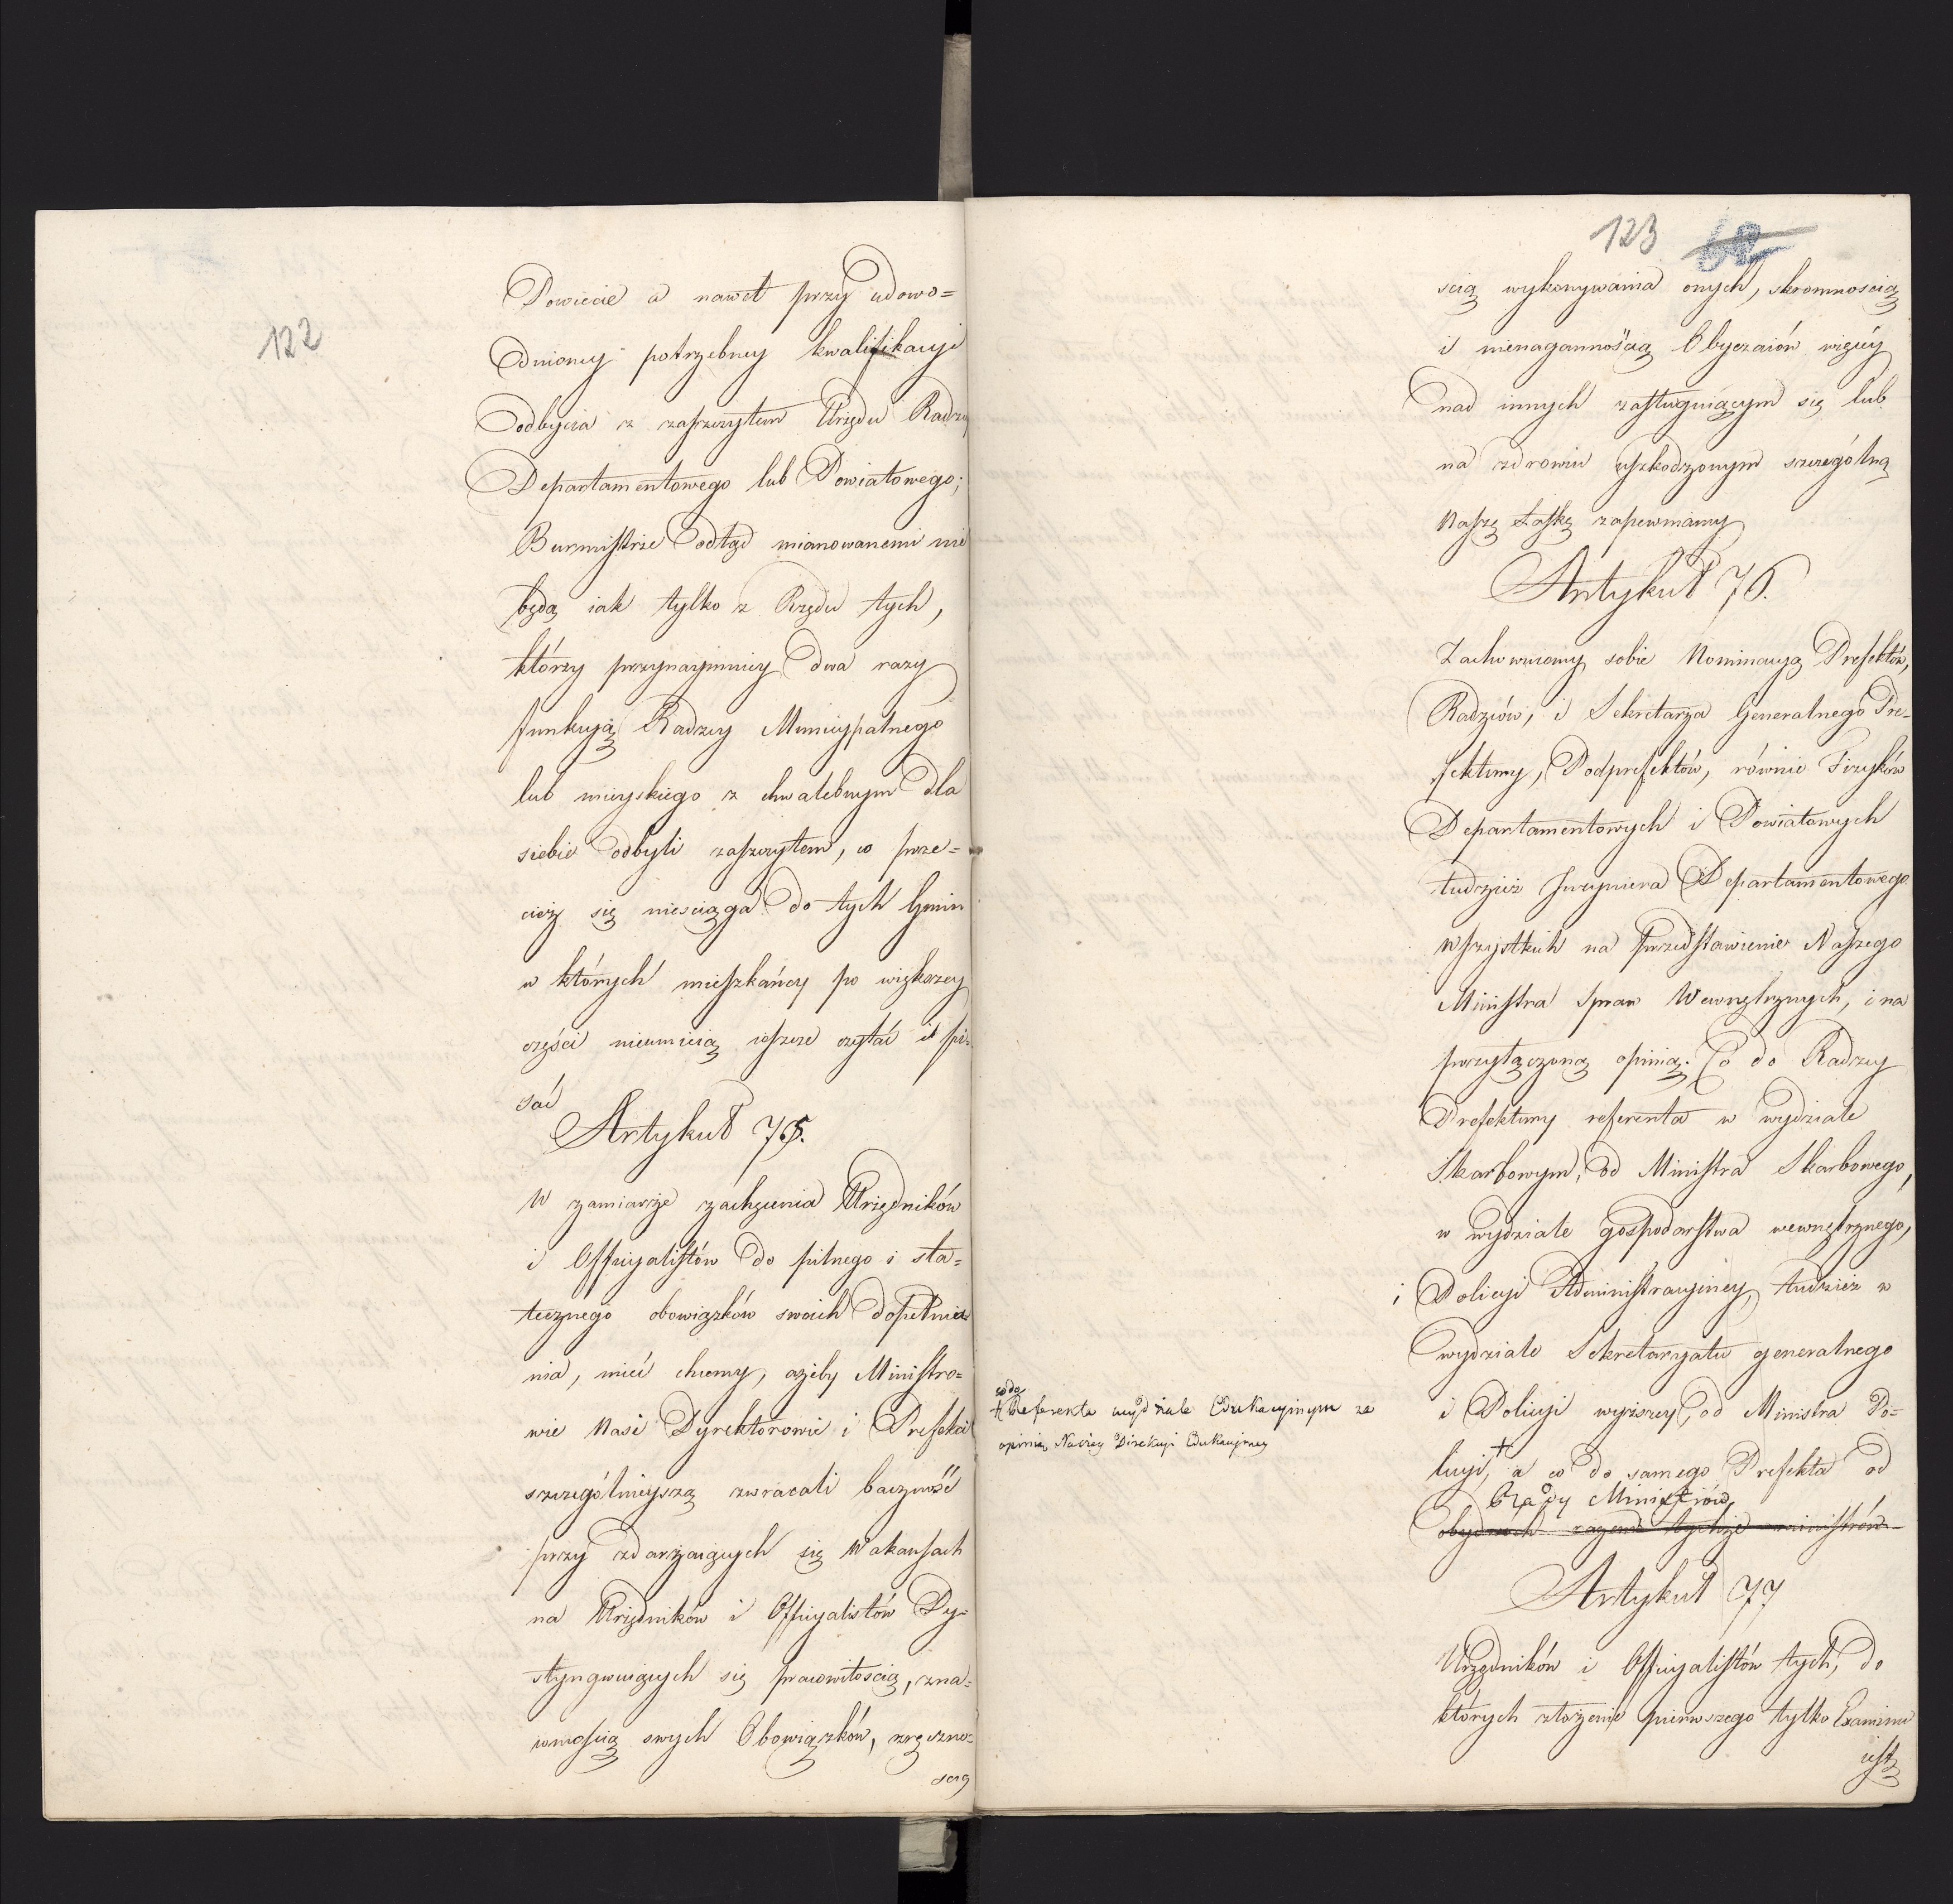 122
Powiecie a nawet przy udowo=
dnioney potrzebney kwalifikacyi
odbycia z zaszczytem Urzędu Radzcy
Departamentowego lub Powiatowego;
Burmistrze odtąd mianowanemi nie
będą iak tylko z Rzędu tych,
którzy przynaymniey dwa razy
funkcyą Radzcy Municypalnego
lub mieyskiego z chwalebnym dla
siebie odbyli zaszczytem, co prze=
cięż się nieściąga do tych Gmin
w których mieszkańcy po większey
części nieumieią ieszcze czytać i pi=
sać
Artykuł 75.
W zamiarze zachęcenia Urzędników
i Officyalistów do pilnego i sta=
tecznego obowiązków swoich dopełnie
nia, mieć chcemy, ażeby Ministro=
wie Nasi Dyrektorowie i Prefekci
szczególnieyszą zwracali baczność
przy zdarzaiących się Wakansach
na Urzędników i Officyalistów Dy=
styngwuiących się pracowitością, zna=
iomością swych Obowiązków, zręczno=
scią
123 62
scią wykonywania onych, skromnością
i nienagannością Obyczaiów więcey
nad innych zasługuiącym się lub
na zdrowiu uszkodzonym szczególną
Naszę Łaskę zapewniamy
Artykuł 76.
Zachowuiemy sobie Nominacyą Prefektów,
Radzców, i Sekretarza Generalnego Pre=
fektury, Podprefektów, równie Fizyków
Departamentowych i Powiatowych
tudzież Inżyniera Departamentowego
wszystkich na przedstawienie Naszego
Ministra Spraw Wewnętrznych, i na
przyłączoną opinią: Co do Radzcy
Prefektury referenta w wydziale
Skarbowym, od Ministra Skarbowego,
w wydziale gospodarstwa wewnętrznego,
i Policyi Administracyiney, tudzież w
wydziale Sekretaryatu generalnego
i Policyi wyższey, od Ministra Po=
licyi, + a co do samego Prefekta od
Rady Ministrów
obydwóch razem tychże ministrów
co do
+ Referenta wydziale Edukacyinym za
opinią Naszey Direkcyi Edukacyiney
Artykuł 77
Urzędników i Officyalistów tych, do
których złożenie pierwszego tylko Examinu
iest